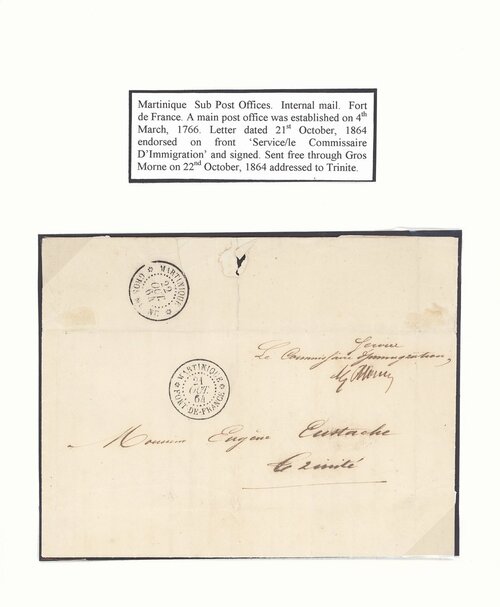 Martinique Sub Post Offices. Internal mail. Fort
de France. A main post office was established on 4th
March, 1766. Letter dated 21st October, 1864
endorsed on front ‘Service/le Commissaire
D’Immigration’ and signed. Sent free through Gros
Morne on 22nd October, 1864 addressed to Trinite.
MARTINIQUE
22
OCT
64
GROS
Service
Le Commissaire d'immigration,
MARTINIQUE
21
OCT
64
FORT-DE-FRANCE
Monsieur Eugène Eustache
Trinité